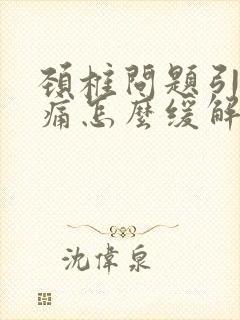 頚椎問題引
痛怎麼緩解
沈偉泉